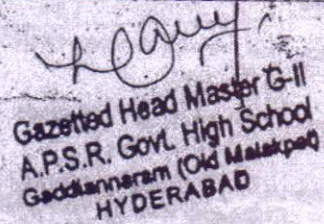 Gazetted Head Master G-II
A.P.S.R. Govt. High School
Gaddiannaram (Old Malakpet)
HYDERABAD